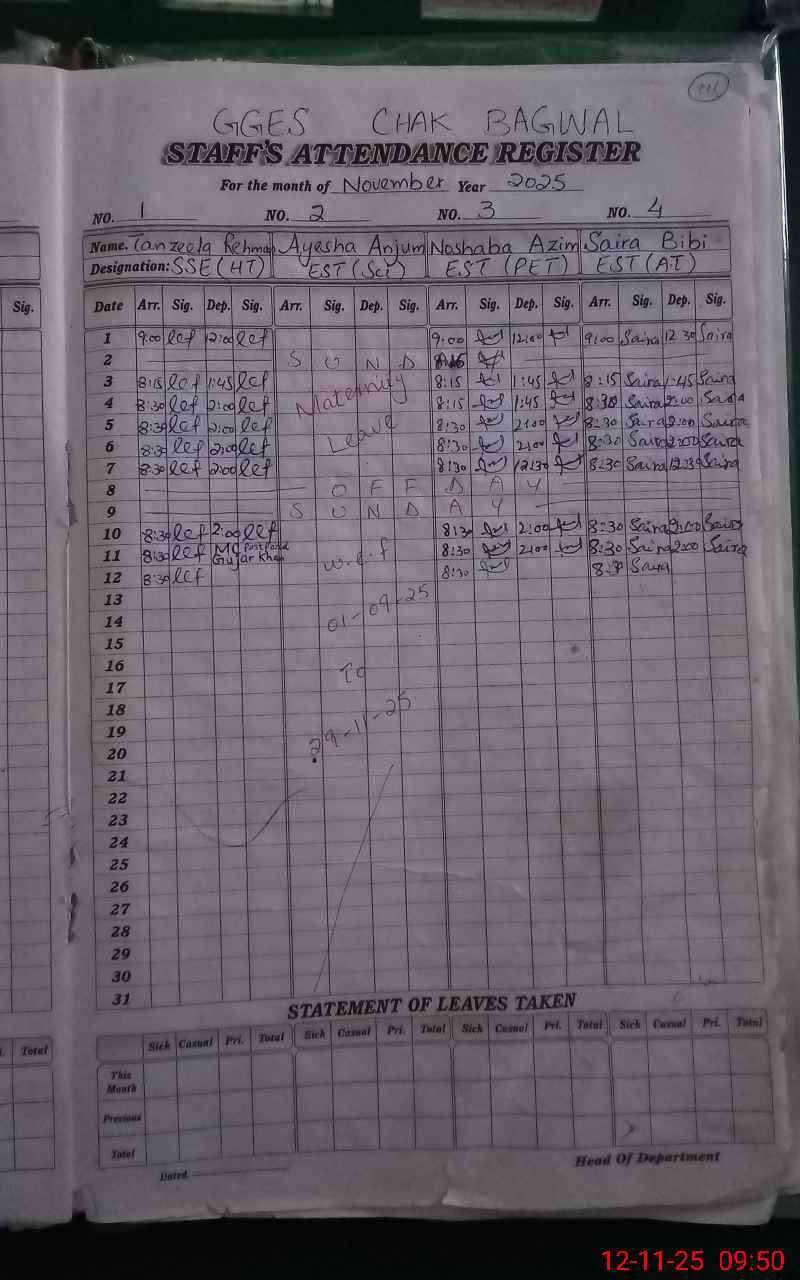 GGES CHAK BAGWAL
STAFF'S ATTENDANCE REGISTER
For the month of November Year 2025
NO. 1 NO. 2 NO. 3 NO. 4
Name. Tanzeela Rehman Ayesha Anjum Noshaba Azim Saira Bibi
Designation: SSE (HT) EST (Sci) EST (PET) EST (A.I)
Sig. Date Arr. Sig. Dep. Sig. Arr. Sig. Dep. Sig. Arr. Sig. Dep. Sig. Arr. Sig. Dep. Sig.
1 9:00 12:00 9:00 12:00 9:00 Saira 12:30 Saira
2 S U N D
3 8:15 1:45 Maternity 8:15 1:45 8:15 Saira 1:45 Saira
4 8:30 2:00 8:15 1:45 8:30 Saira 2:00 Saira
5 8:30 2:00 Leave 8:30 2:00 8:30 Saira 2:00 Saira
6 8:30 2:00 8:30 2:00 8:30 Saira 2:00 Saira
7 8:30 2:00 8:30 12:30 8:30 Saira 12:30 Saira
8 O F F D A Y
9 S U N D A Y
10 8:30 2:00 8:30 2:00 8:30 Saira 2:00 Saira
11 8:30 Gujar Khan w.e.f 8:30 2:00 8:30 Saira 2:00 Saira
12 8:30 8:30 8:30 Saira
13
14 01-09-25
15
16 To
17
18
19 29-11-25
20
21
22
23
24
25
26
27
28
29
30
31
STATEMENT OF LEAVES TAKEN
Total Sick Casual Pri. Total Sick Casual Pri. Total Sick Casual Pri. Total Sick Casual Pri. Total
This Month
Previous
Total
Dated
Head Of Department
12-11-25 09:50